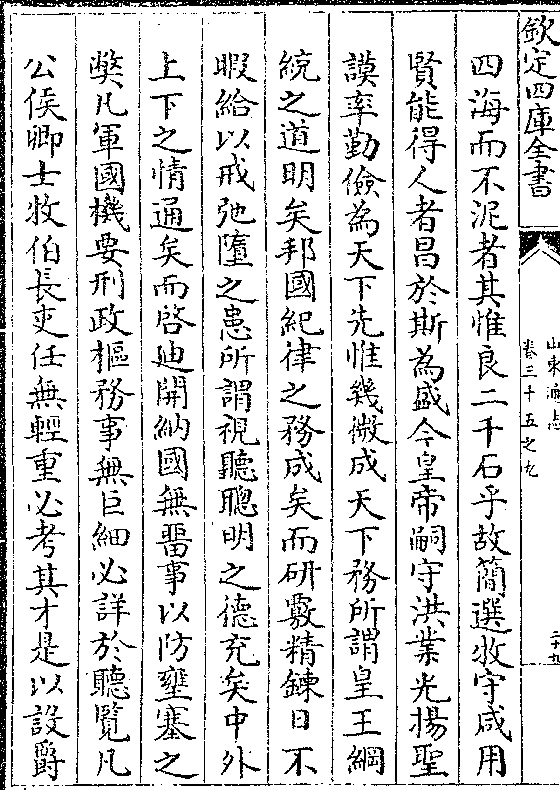 欽定四庫全書
山東通志
卷三十五之九
二十九
四海而不泥者其惟良二千石乎故簡選牧守咸用
賢能得人者昌於斯為盛今皇帝嗣守洪業光揚聖
謨率勤儉為天下先惟幾微成天下務所謂皇王綱
統之道明矣邦國紀律之務成矣而研覈精鍊日不
暇給以戒弛墮之患所謂視聽聰明之德充矣中外
上下之情通矣而啓廸開納國無噐事以防壅塞之
獘凡軍國機要刑政樞務事無巨細必詳於聽覽凡
公侯卿士牧伯長吏任無輕重必考其才是以設爵